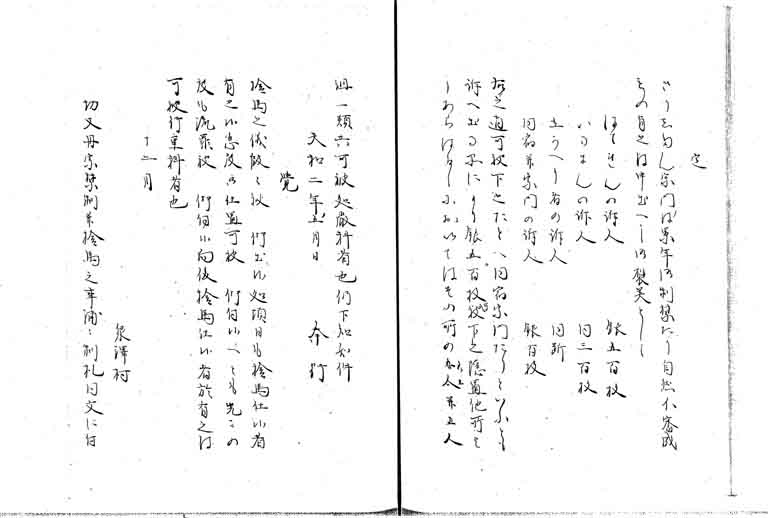 定
きりしたん宗門は累年御制禁たり自然不審成
もの有之は申出へし御褒美として
はてれんの訴人 銀五百枚
いるまんの訴人 同三百枚
立かへり者の訴人 同断
同宿并宗門の訴人 銀百枚
右之通可被下之たとへ同宿宗門たりといふとも
訴人出る品により銀五百枚被下之隠置他所より
あらはるゝにおいてはその所の名主并五人
組一類共可被処厳科者也仍下知如件
天和二年五月日 奉行
覚
捨馬之儀段々被 仰出候処頃日も捨馬仕候者
有之候急度御仕置可被 仰付候へとも先この
度も流罪被 仰付候向後捨馬仕候者於有之は
可被行重科者也
十二月
泉澤村
切又丹宗禁制并捨馬之事浦々制札同文に付